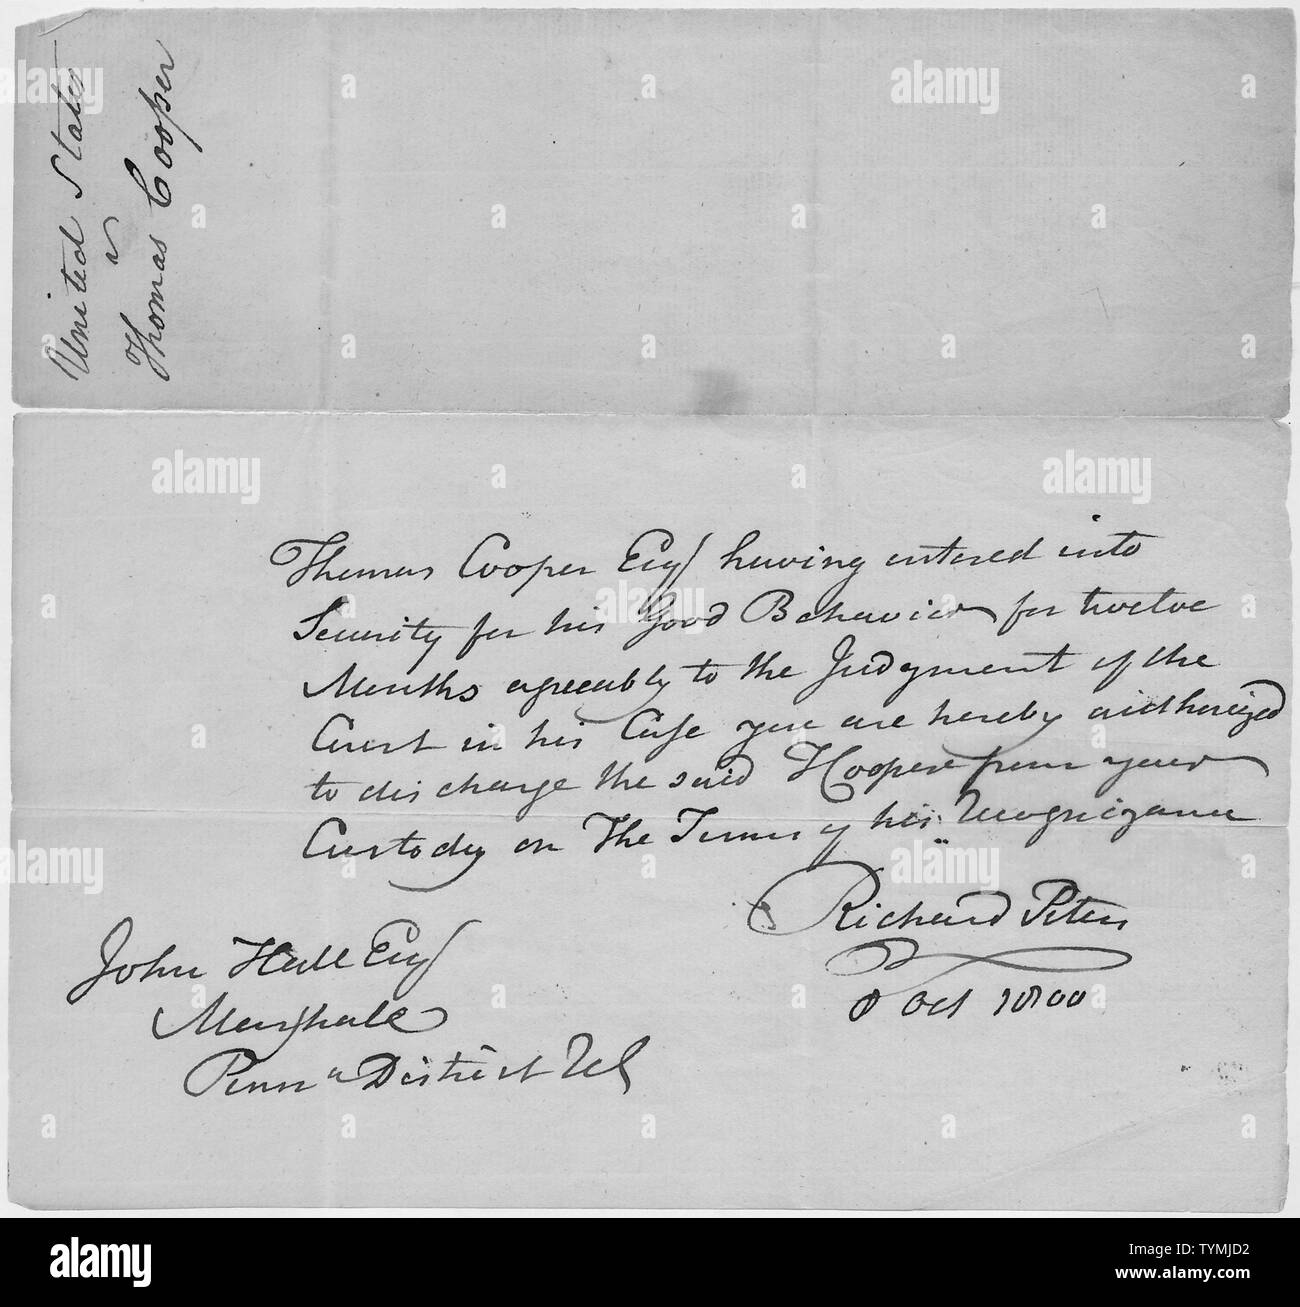 United States
v
Thomas Cooper
Thomas Cooper Esq having entered into
Security for his Good Behavior for twelve
Months agreeably to the Judgment of the
Court in his Case you are hereby authorized
to discharge the said T Cooper from your
Custody on The Terms of his Recognizance
Richard Peters
8 Oct 1800
John Hall Esq
Marshall
Penna District US
alamy
Image ID: TYMJD2
www.alamy.com